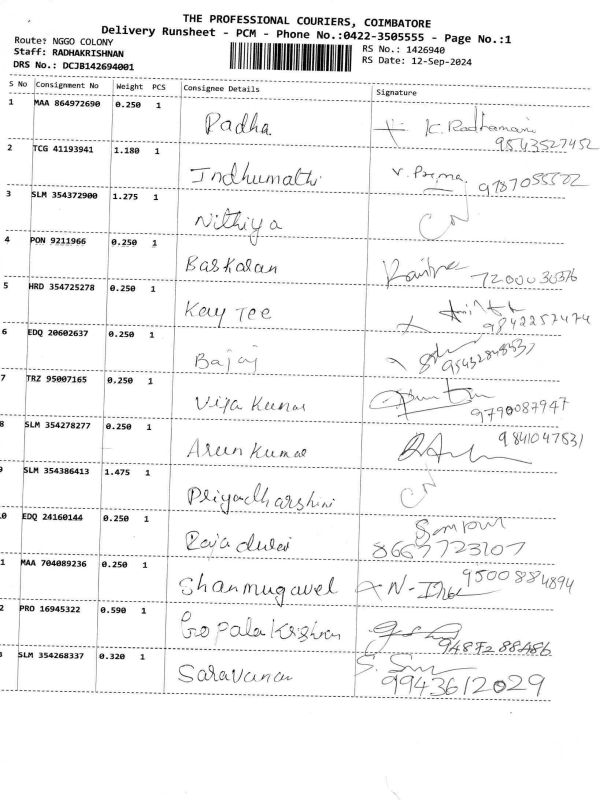 THE PROFESSIONAL COURIERS, COIMBATORE
Delivery Runsheet - PCM - Phone No.:0422-3505555 - Page No.:1
Route: NGGO COLONY RS No.: 1426940
Staff: RADHAKRISHNAN RS Date: 12-Sep-2024
DRS No.: DCJB142694001
S No Consignment No Weight PCS Consignee Details Signature
1 MAA 864972690 0.250 1 Padha K. Radhamani
9543527452
2 TCG 41193941 1.180 1 Indhumathi V. Prema 9787055522
3 SLM 354372900 1.275 1 Nithiya CN
4 PON 9211966 0.250 1 Baskaran
5 HRD 354725278 0.250 1 Kay Tee 9842257474
6 EDQ 20602637 0.250 1 Bajaj
7 TRZ 95007165 0.250 1 Vija Kumar 9790087947
8 SLM 354278277 0.250 1 Arun Kumar 9841047831
9 SLM 354386413 1.475 1 Priyadharshini CN
0 EDQ 24160144 0.250 1 Raja durai 8667723107
1 MAA 704089236 0.250 1 Shanmugavel 9500884894
2 PRO 16945322 0.590 1 Gopala Krishnan 9487288486
3 SLM 354268337 0.320 1 Saravanan 9943612029